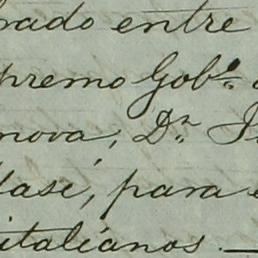 brado entre
premo Gobº
nova, Dn
fase, para
italianos.